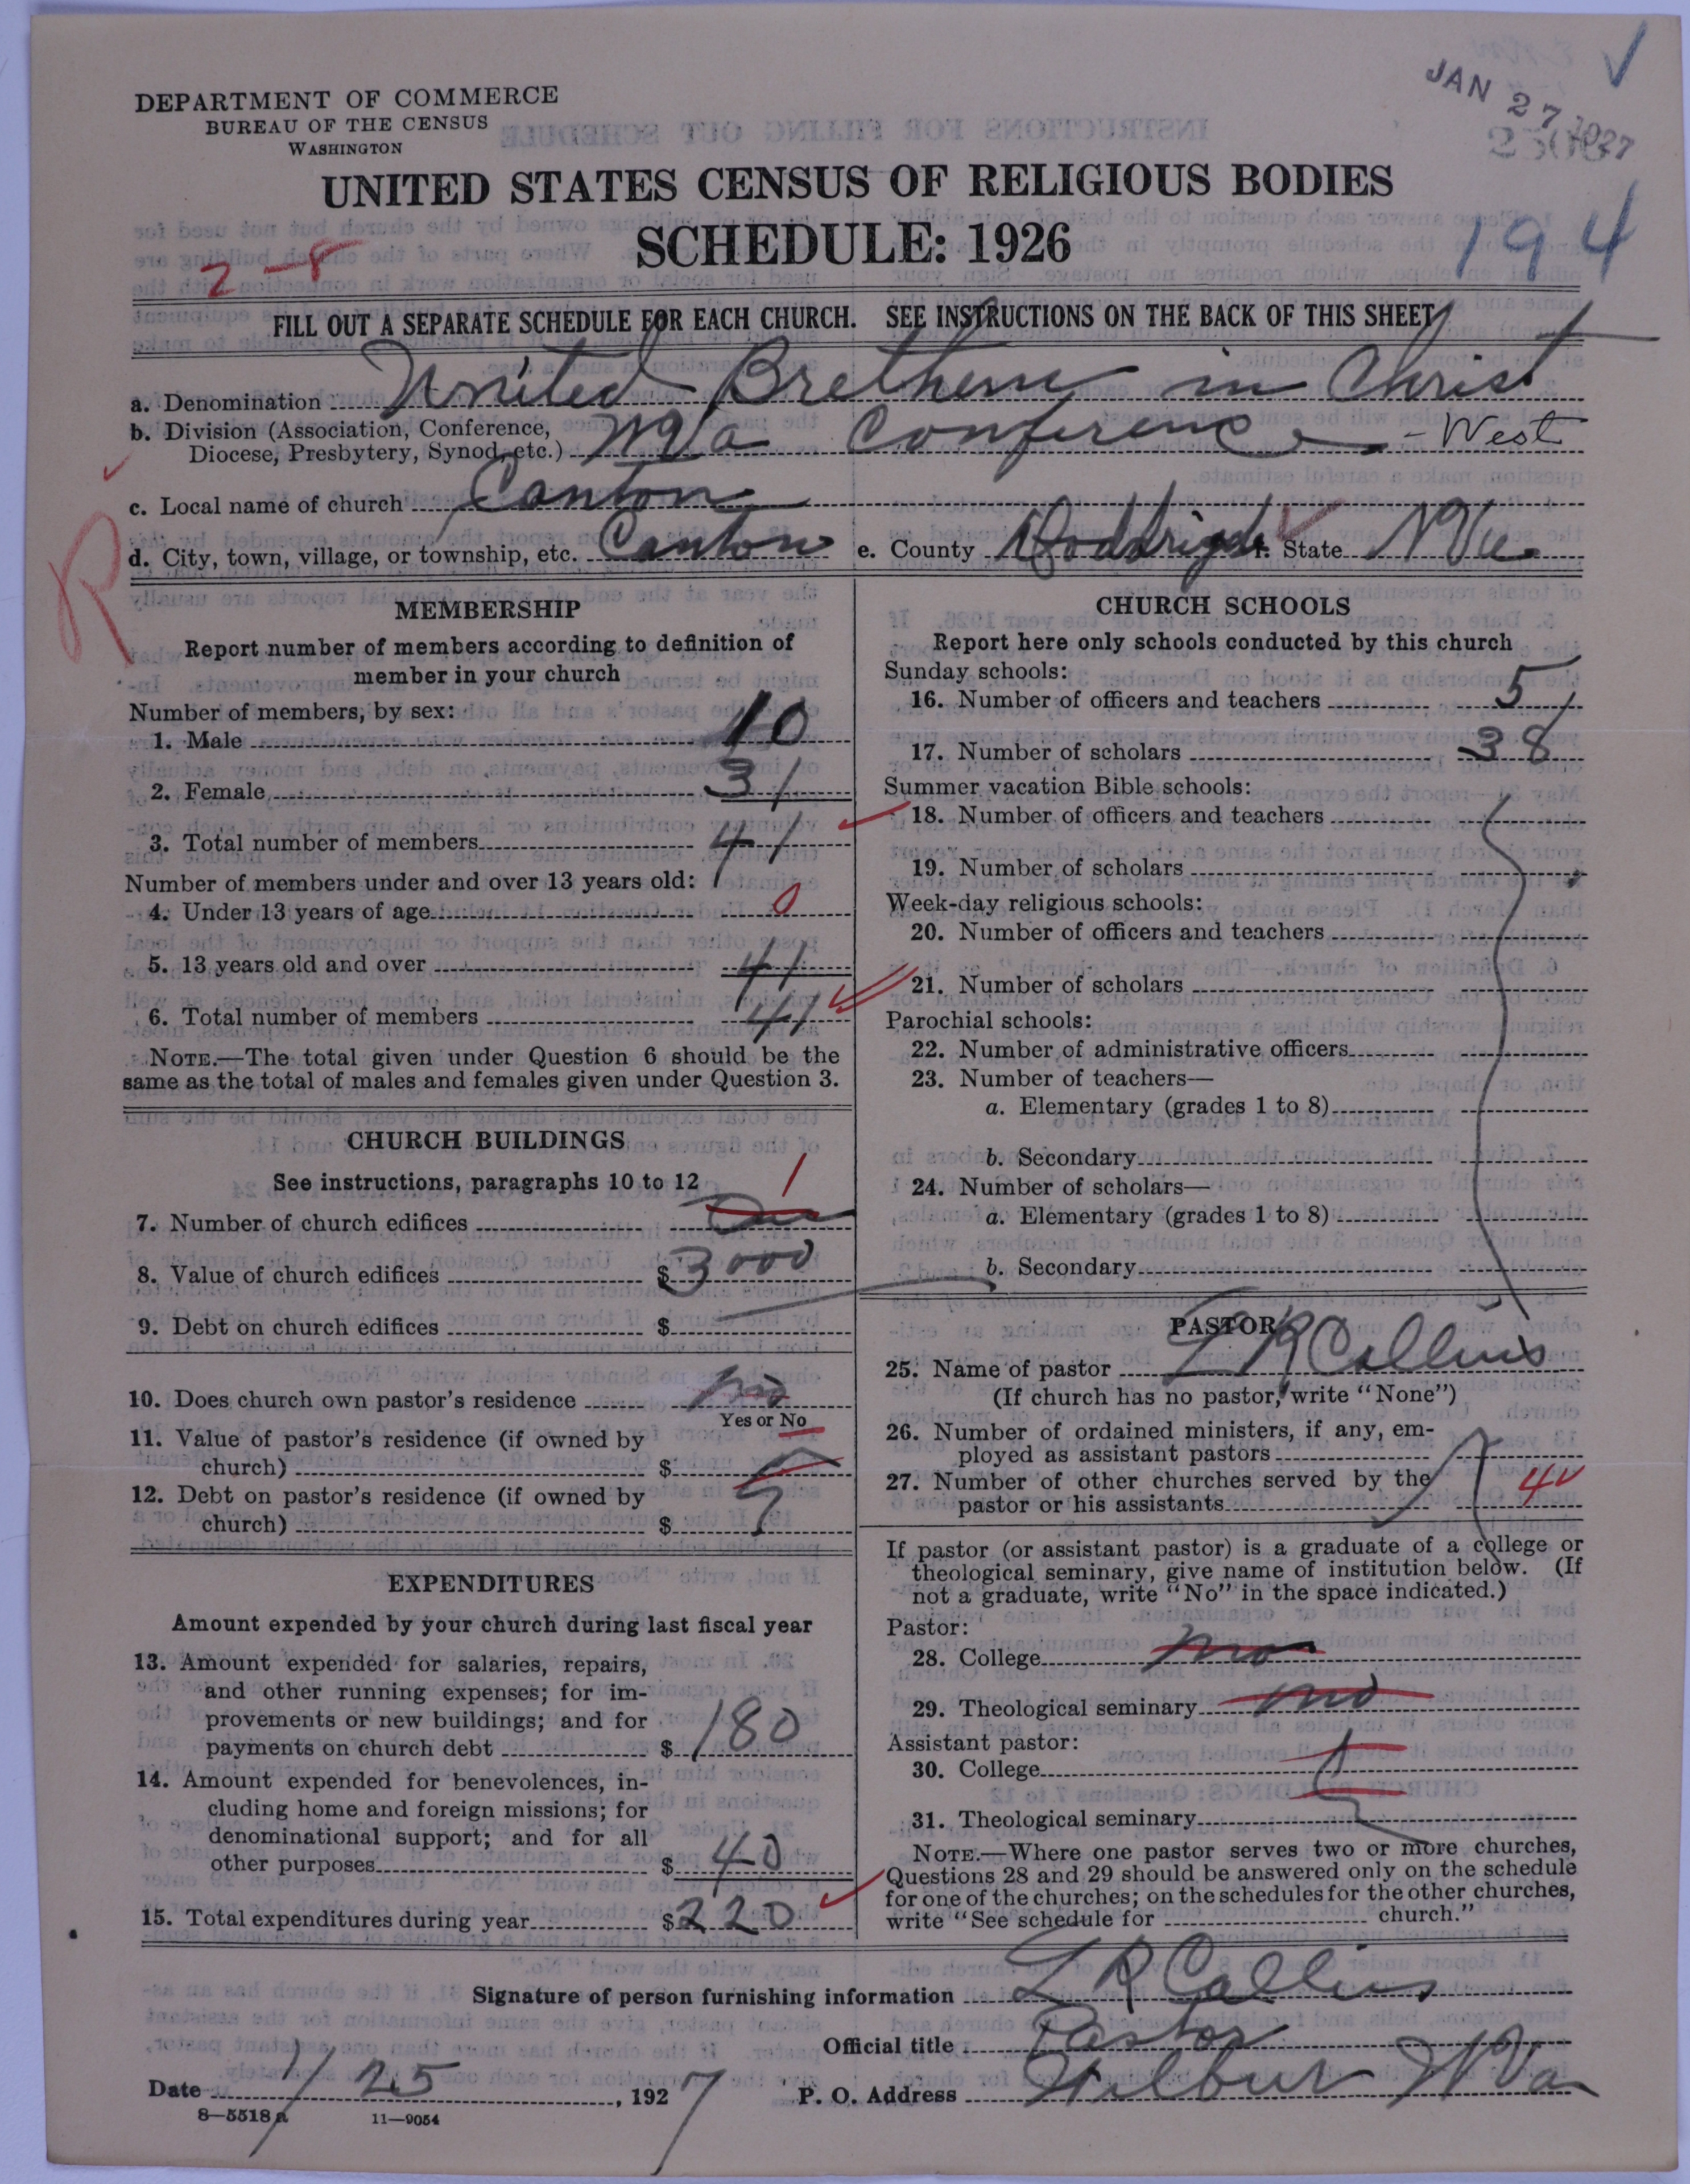 DEPARTMENT OF COMMERCE
BUREAU OF THE CENSUS
WASHINGTON
JAN 27 1927
UNITED STATES CENSUS OF RELIGIOUS BODIES
SCHEDULE: 1926
194
2-8
FILL OUT A SEPARATE SCHEDULE FOR EACH CHURCH. SEE INSTRUCTIONS ON THE BACK OF THIS SHEET
a. Denomination United Brethern in Christ
b. Division (Association, Conference, Diocese, Presbytery, Synod, etc.) WVa Conference - West
c. Local name of church Canton
d. City, town, village, or township, etc. Canton e. County Doddridge f. State WVa
R
MEMBERSHIP
Report number of members according to definition of
member in your church
Number of members, by sex:
1. Male 10
2. Female 31
3. Total number of members 41
Number of members under and over 13 years old:
4. Under 13 years of age 0
5. 13 years old and over 41
6. Total number of members 41
NOTE.—The total given under Question 6 should be the
same as the total of males and females given under Question 3.
CHURCH BUILDINGS
See instructions, paragraphs 10 to 12
7. Number of church edifices One 1
8. Value of church edifices $3000
9. Debt on church edifices $
10. Does church own pastor's residence No
Yes or No
11. Value of pastor's residence (if owned by
church) $
12. Debt on pastor's residence (if owned by
church) $
EXPENDITURES
Amount expended by your church during last fiscal year
13. Amount expended for salaries, repairs,
and other running expenses; for im-
provements or new buildings; and for
payments on church debt $180
14. Amount expended for benevolences, in-
cluding home and foreign missions; for
denominational support; and for all
other purposes $40
15. Total expenditures during year $220
CHURCH SCHOOLS
Report here only schools conducted by this church
Sunday schools:
16. Number of officers and teachers 5
17. Number of scholars 38
Summer vacation Bible schools:
18. Number of officers and teachers
19. Number of scholars
Week-day religious schools:
20. Number of officers and teachers
21. Number of scholars
Parochial schools:
22. Number of administrative officers
23. Number of teachers—
a. Elementary (grades 1 to 8)
b. Secondary
24. Number of scholars—
a. Elementary (grades 1 to 8)
b. Secondary
PASTOR
25. Name of pastor L R Collins
(If church has no pastor, write "None")
26. Number of ordained ministers, if any, em-
ployed as assistant pastors
27. Number of other churches served by the
pastor or his assistants 4
If pastor (or assistant pastor) is a graduate of a college or
theological seminary, give name of institution below. (If
not a graduate, write "No" in the space indicated.)
Pastor:
28. College no
29. Theological seminary no
Assistant pastor:
30. College
31. Theological seminary
NOTE.—Where one pastor serves two or more churches,
Questions 28 and 29 should be answered only on the schedule
for one of the churches; on the schedules for the other churches,
write "See schedule for church."
Signature of person furnishing information L R Collins
Official title Pastor
Date 1/25, 1927 P. O. Address Wilbur WVa
8—5518a 11—9054